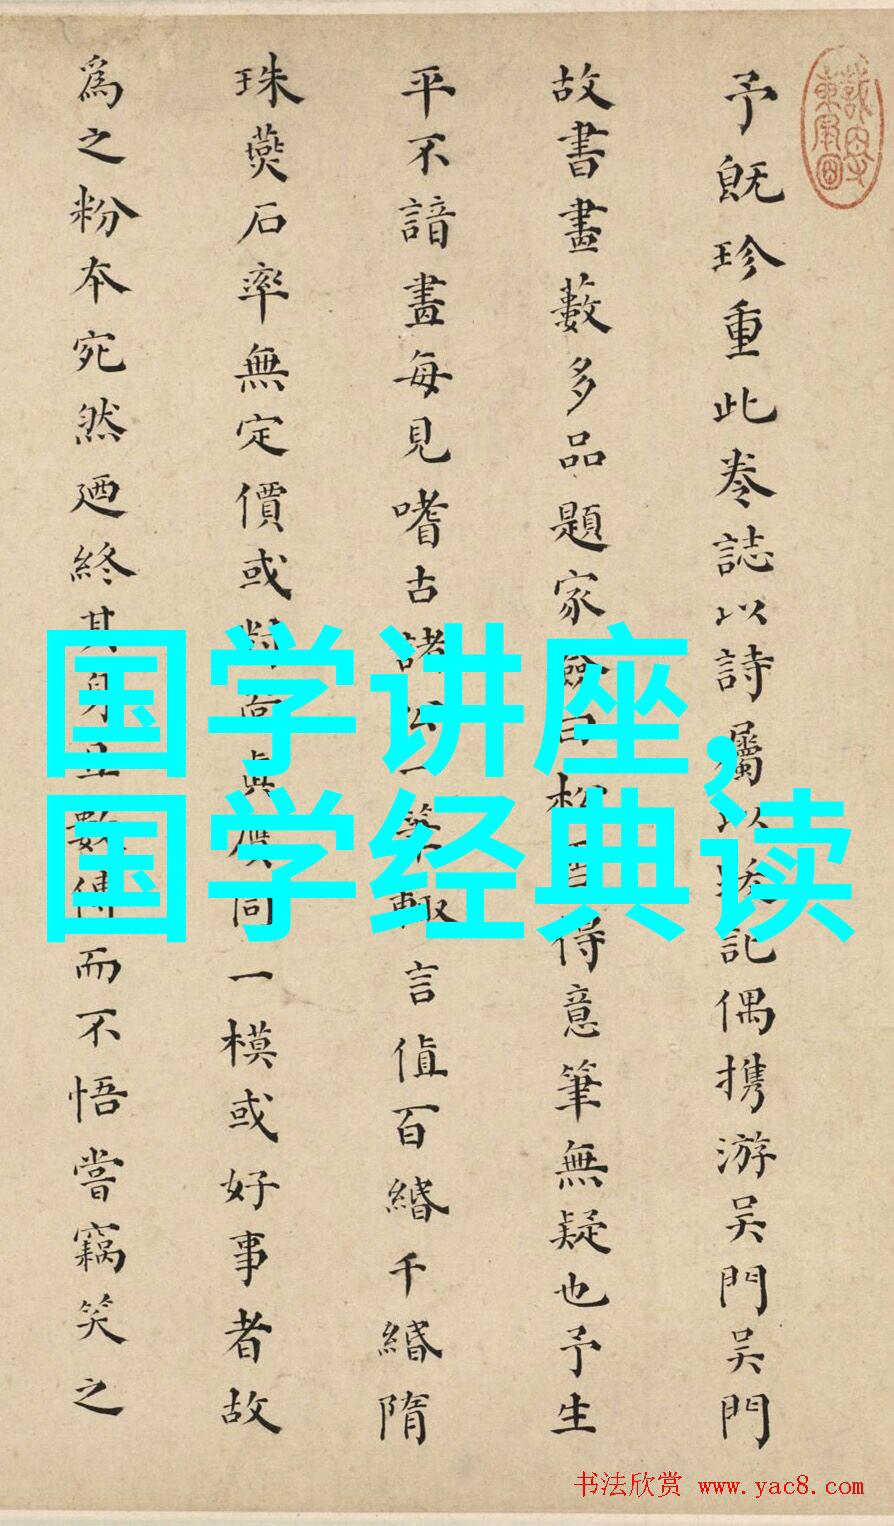 予既珍重此卷誌以詩屬以跋記偶携游吴門吴門
故書畫藪多品題家僉曰松雪得意筆無疑也予生
平不諳畫每見嗜古諸公一筆輒言值百緡千緡隋
珠燕石率無定價或對面真贋同一模或好事者故
為之粉本宛然廼終其身且數傳而不悟嘗竊笑之
国学讲座,
国学经典读
书法欣赏 www.yac8.com